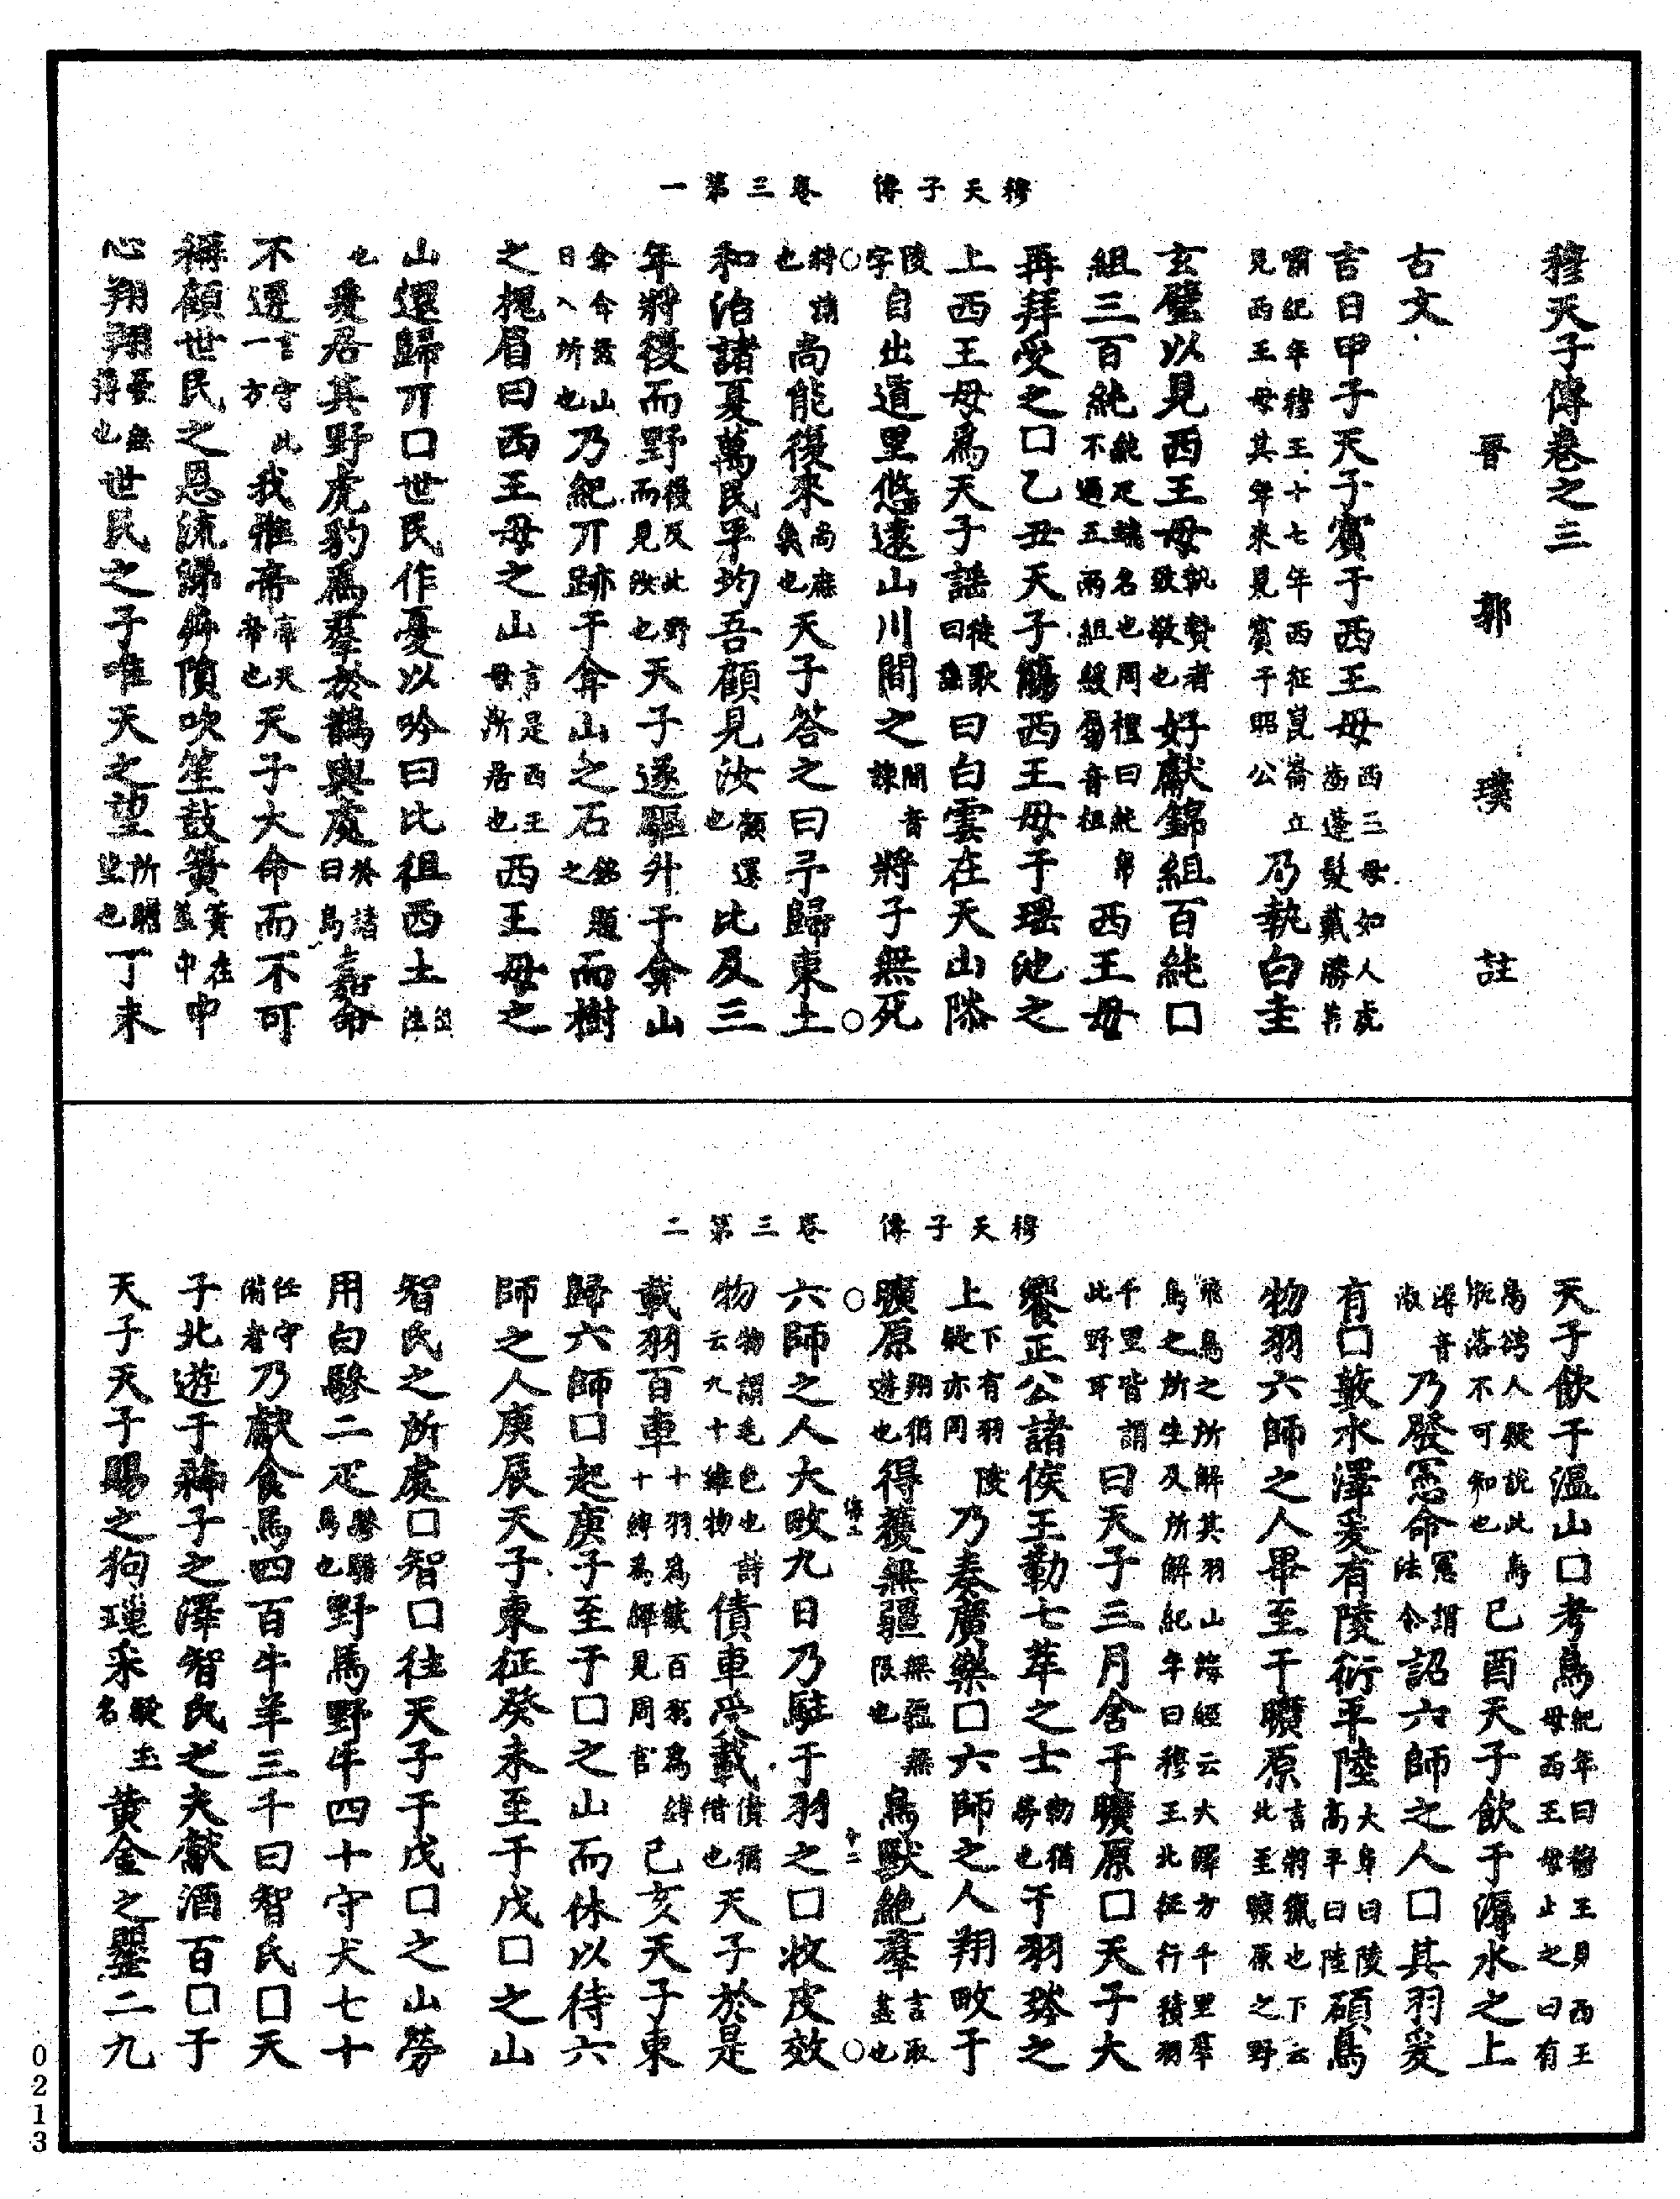 穆天子傳　卷三第一
穆天子傳卷之三
晉　郭　璞　註
古文
吉日甲子天子賓于西王母西三母如人虎齒蓬髮戴勝善
嘯紀年穆王十七年西征崑崙丘見西王母其年來見賓于昭公乃執白圭
玄璧以見西王母執贄者致敬也好獻錦組百純口
組三百純純疋端名也周禮曰純帛不過五兩組綬屬音祖西王母
再拜受之口乙丑天子觴西王母于瑤池之
上西王母爲天子謡徒歌曰謡曰白雲在天山䧙
陵字自出道里悠遠山川間之間音諫將子無死
將請也尚能復來尚庶幾也天子答之曰予歸東土
和治諸夏萬民平均吾顧見汝顧還也比及三
年將復而野復反此野而見汝也天子遂驅升于弇山
弇弇茲山日入所也乃紀丌跡于弇山之石銘題之而樹
之槐眉曰西王母之山言是西王母所居也西王母之
山還歸丌口世民作憂以吟曰比徂西土徂往
也爰居其野虎豹爲羣於鵲與處於讀曰烏嘉命
不遷言守此一方我惟帝帝天帝也天子大命而不可
稱顧世民之恩流涕隕吹笙鼓簧簧在笙中中
心翔翔憂無薄也世民之子唯天之望所瞻望也丁未
穆天子傳　卷三第二
天子飲于溫山口考鳥紀年曰穆王見西王母西王母止之曰有
鳥人疑說此鳥脫落不可知也己酉天子飲于溽水之上
溽音淑乃發憲命憲謂法令詔六師之人口其羽爰
有口藪水澤爰有陵衍平陸大阜曰陵高平曰陸碩鳥
物羽六師之人畢至于曠原言將獵也下云北至曠原之野
飛鳥之所解其羽山海經云大澤方千里羣鳥之所生及所解紀年曰穆王北征行積羽
千里皆謂此野耳曰天子三月舍于曠原口天子大
饗正公諸侯王勒七萃之士于羽琌之
上下有羽陵疑亦同乃奏廣樂口六師之人翔畋于
曠原翔猶遊也得獲無疆無疆無限也鳥獸絕羣言取盡也
六師之人大畋九日乃駐于羽之口收皮效
物物謂毛色也詩云九十維物債車受載債猶借也天子於是
載羽百車十羽爲箴百羽爲縛十縛爲緷見周官己亥天子東
歸六師口起庚子至于口之山而休以待六
師之人庚辰天子東征癸未至于戊口之山
智氏之所處口智口往天子于戊口之山勞
用白驂二疋驂騑馬也野馬野牛四十守犬七十
任守備者乃獻食馬四百牛羊三千曰智氏口天
子北遊于子之澤智氏之夫獻酒百口于
天子天子賜之狗瑾采玉名黃金之罌二九
0213